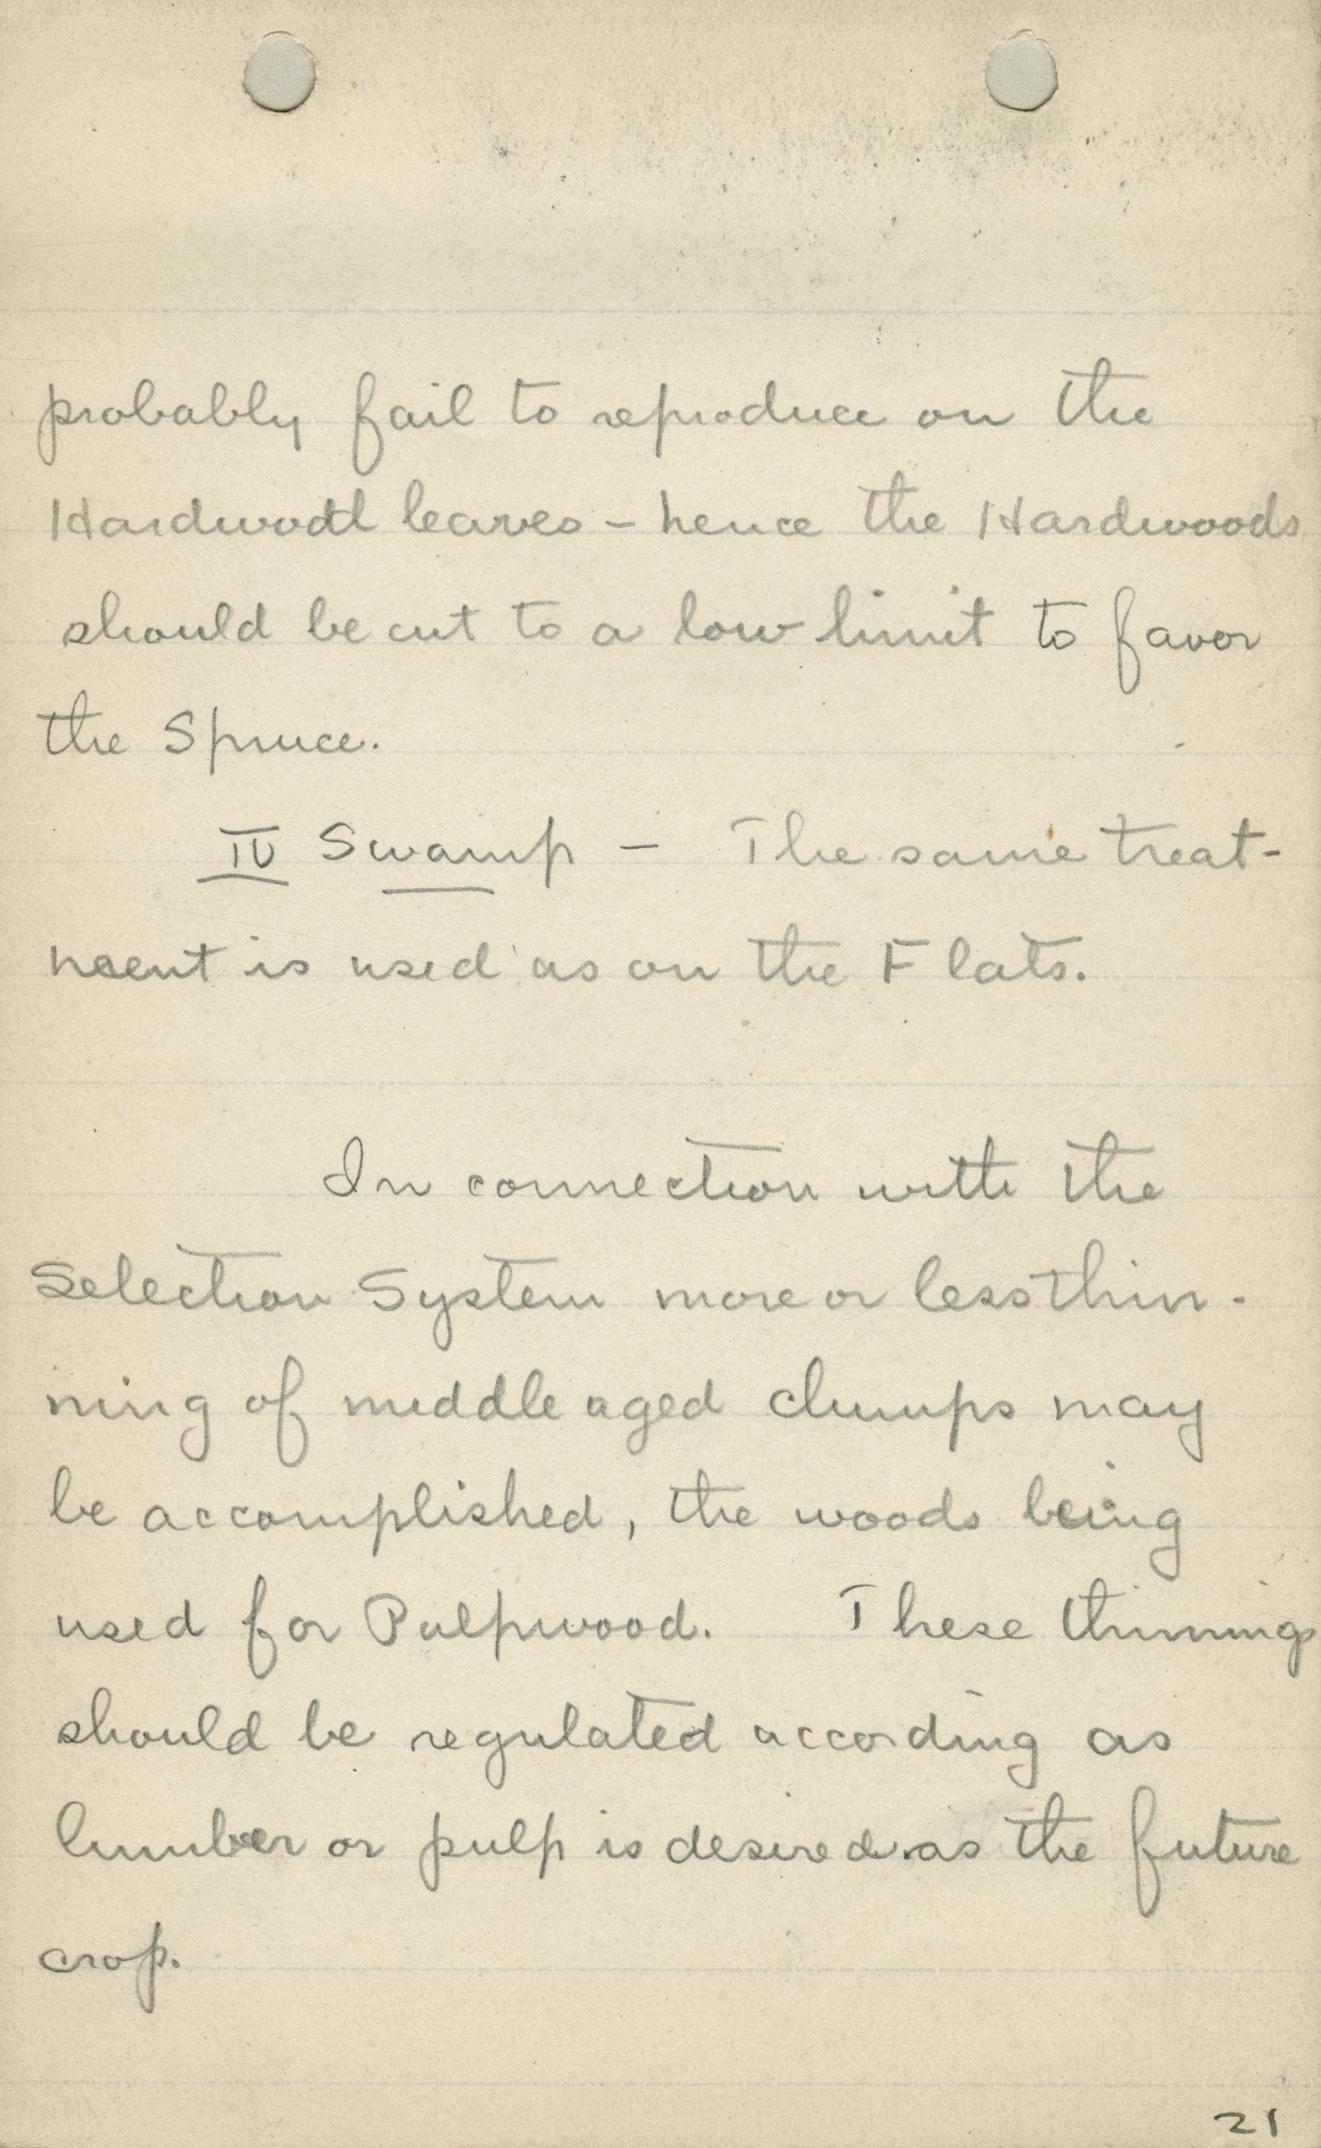 probably fail to reproduce on the
Hardwood leaves – hence the Hardwoods
should be cut to a low limit to favor
the Spruce.
IV Swamp – The same treat-
ment is used as on the Flats.
In connection with the
Selection System more or less thin-
ning of middle aged clumps may
be accomplished, the woods being
used for Pulpwood. These thinnings
should be regulated according as
lumber or pulp is desired as the future
crop.
21